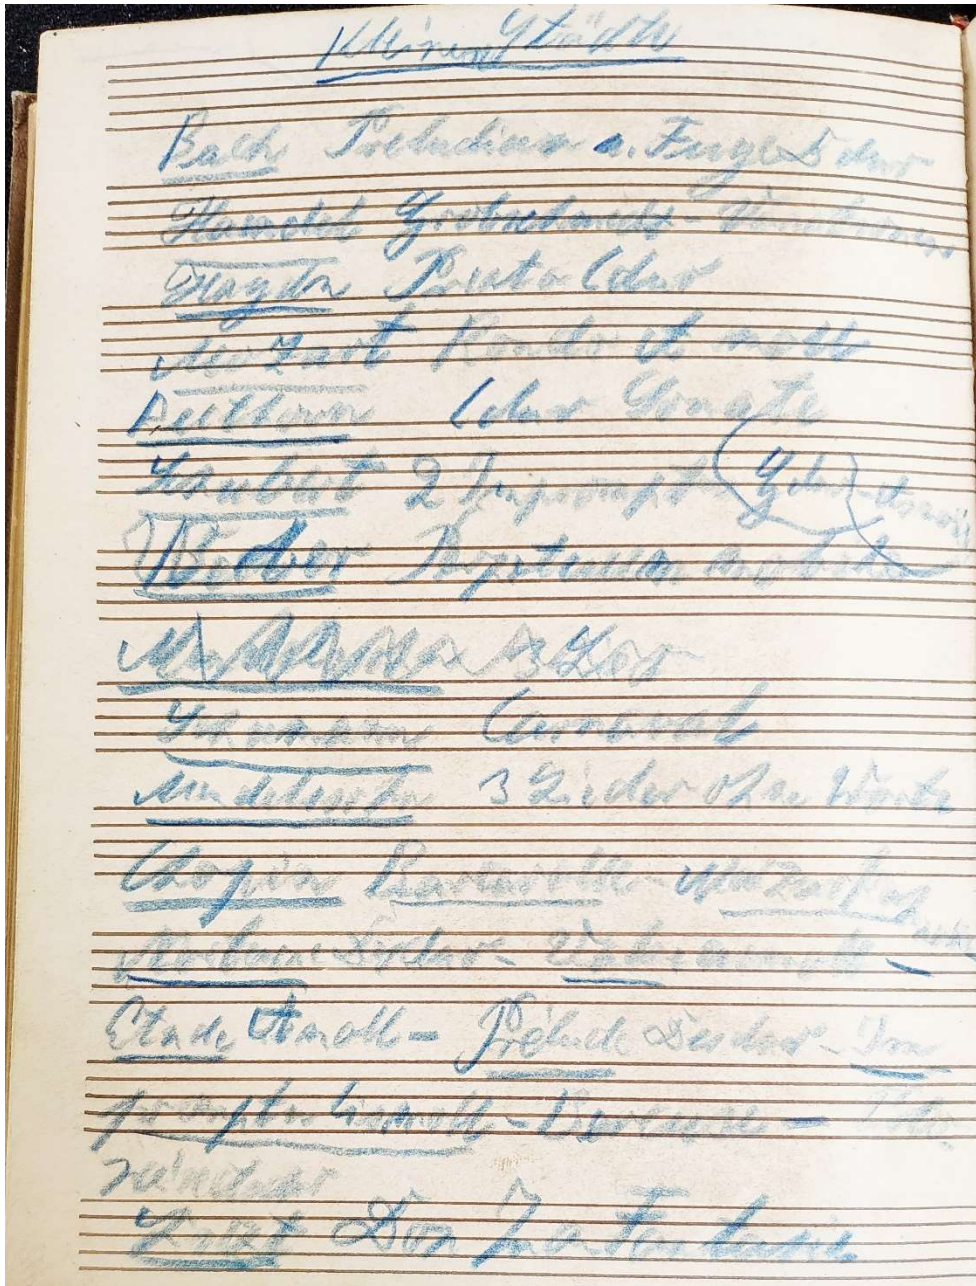 Kleinere Städte
Bach Preludium u. Fuge D dur
Haendel Grobschmidt-Variationen
Haydn Cdur
Mozart Rondo A moll
Beethoven Cdur Sonate
Schubert 2 Impromptu (Gdur-
Weber Perpetuum mobile
3 Lieder
Schumann Carneval
Mendelssohn 3 Lieder ohne Worte
Chopin Barcarolle - Mazurka
Nocturne Desdur -
Etude Amoll - Prélude Desdur - Im
promptu - Berceuse -
Liszt Don Juan Fantasie